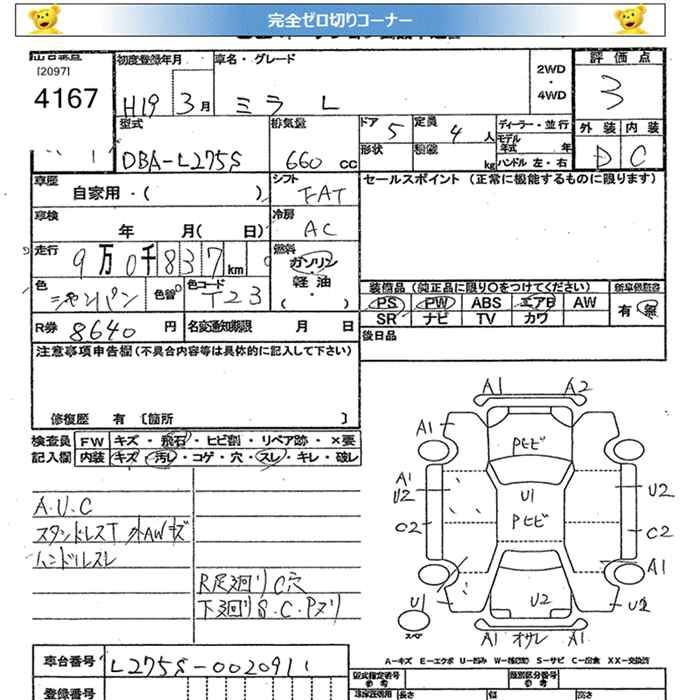 完全ゼロ切りコーナー
出品番号 初度登録年月 車名・グレード 2WD・4WD 評価点
[2097]
4167 H19 3月 ミラ L 3
型式 排気量 ドア 5 定員 4人 ディーラー・並行 外装 内装
DBA-L275S 660cc 形状 積載 kg モデル年式 年 ハンドル 左・右 D C
車歴 自家用・( ) シフト FAT セールスポイント (正常に機能するものに限ります)
車検 年 月( 日) 冷房 AC
走行 9万0千837km 燃料 ガソリン・軽油・( )
色 シャンパン 色替 色コード T23 装備品(純正品に限り○をつけてください)
PS PW ABS エアB AW 有・無
R券 8640円 名変通知期限 月 日 SR ナビ TV カワ
注意事項申告欄(不具合内容等は具体的に記入して下さい) 後日品
修復歴 有 〔箇所 〕
検査員 FW キズ・飛石・ヒビ割・リペア跡・×要
記入欄 内装 キズ・汚レ・コゲ・穴・スレ・キレ・破レ
A.U.C
スタンドレスT 外AWキズ
ハンドルスレ
R足廻りC穴
下廻りS.C.Pヌリ
A1 A2
A1 Pヒビ
A1
U2 U1 U2
Pヒビ
C2 C2
A1
U1 U2 U2
スペア A1 オサレ A1
A-キズ E-エクボ U-凹み W-補(波) S-サビ C-腐食 XX-交換済
車台番号 L275S-0020911
型式指定番号 類別区分番号
登録番号 参考 長さ 幅 高さ